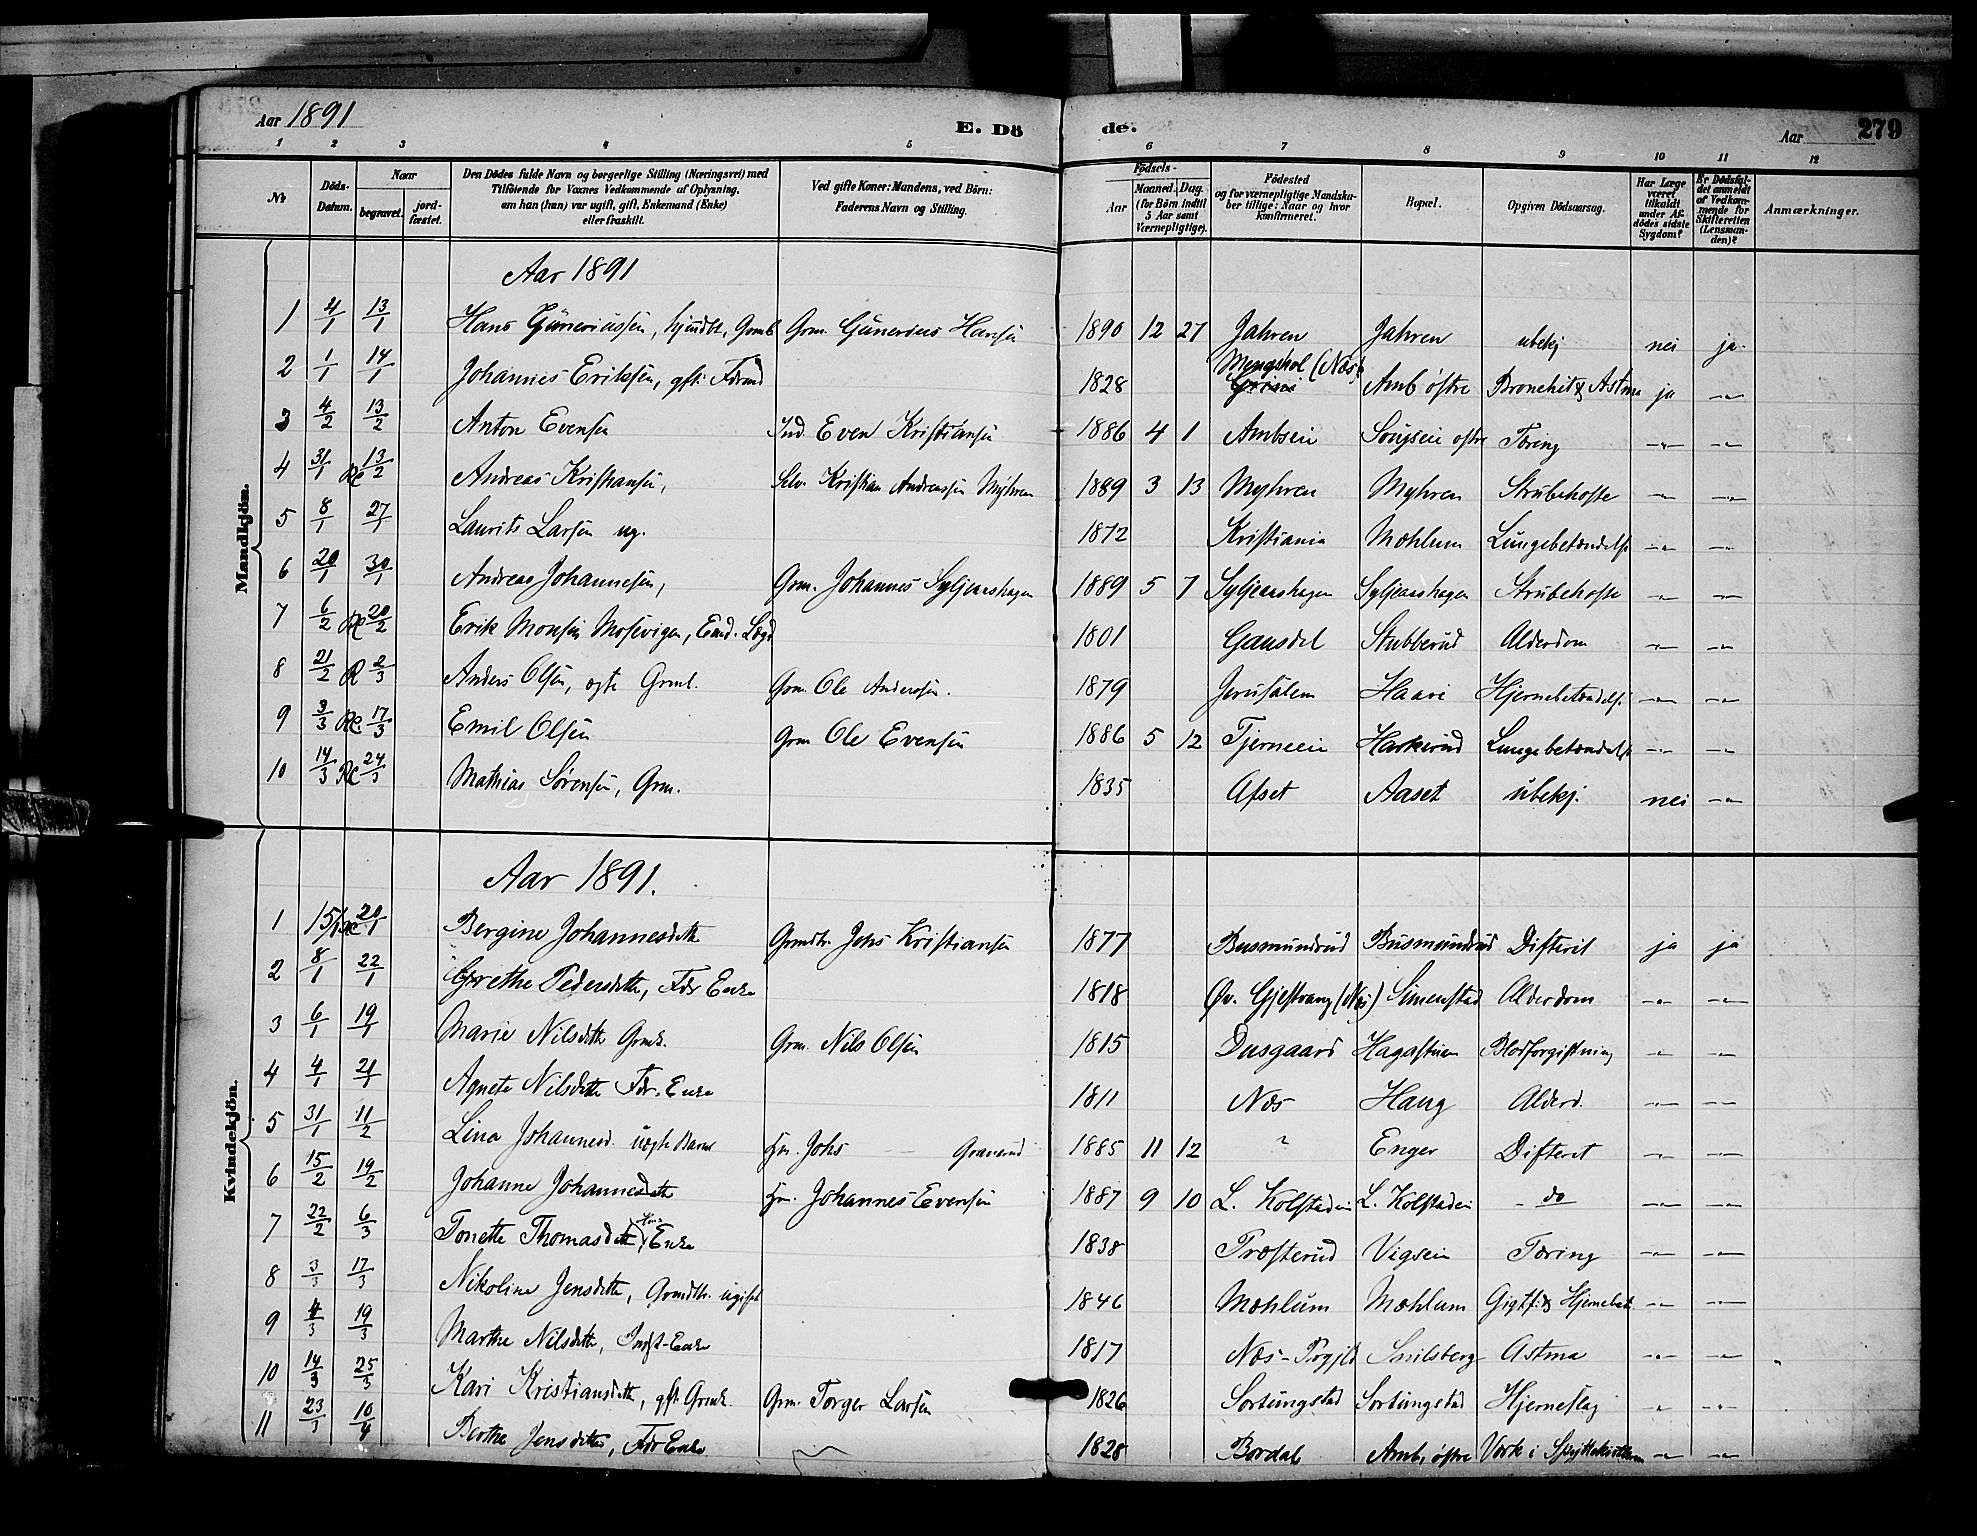 Aar 1891
E. Dö
de.
Aar 279
1 2 3 4 5 6 7 8 9 10 11 12
No
Döds-Datum.
Naar
begravet.
jord-fæstet.
Den Dödes fulde Navn og borgerlige Stilling (Næringsvei) med
Tilföiende for Voxnes Vedkommende af Oplysning,
om han (hun) var ugift, gift, Enkemand (Enke)
eller fraskilt.
Ved gifte Koner: Mandens, ved Börn:
Faderens Navn og Stilling.
Födsels-
Aar
Maaned. Dag.
(for Börn indtil
5 Aar samt
Værnepligtige).
Födested
og for værnepligtige Mandska-
ber tillige: Naar og hvor
konfirmeret.
Bopæl.
Opgiven Dödsaarsag.
Har Læge
været
tilkaldt
under Af-
dödes sidste
Sygdom?
Er Dödsfal-
det anmeldt
af Vedkom-
mende for
Skifteretten
(Lensman-
den)?
Anmærkninger.
Mandkjön.
Aar 1891
1 4/1 13/1 Hans Guneriussen, Grm. Gunerius Hansen 1890 12 27 Jahren Jahren ubekj nei ja
2 1/1 14/1 Johannes Eriksen, gift 1828 Mengshol (Næs) Amb östre Bronchit & Astma ja -"-
3 4/2 13/2 Anton Evensen Ind. Even Kristiansen 1886 4 1 Ambseie östre Tæring -"- -"-
4 31/1 Re 13/2 Andreas Kristiansen, Selv. Kristian Andreassen Myhren 1889 3 13 Myhren Myhren Strubehoste -"- -"-
5 8/1 27/1 Laurits Larsen ug. 1872 Kristiania Mæhlum Lungebetændelse -"- -"-
6 20/1 30/1 Andreas Johannesen, Grm. Johannes Syljeaashagen 1889 5 7 Syljeaashagen Syljeaashagen Strubehoste -"- -"-
7 6/2 Re 20/2 Erik Monsen Mosevigen, Emd. Lægd 1801 Gausdal Stubberud Alderdom -"- -"-
8 21/2 R 2/3 Anders Olsen, ægte Grm. Ole Andersen. 1879 Jerusalem Haave Hjernebetændelse -"- -"-
9 3/3 Re 17/3 Emil Olsen Grm Ole Evensen 1886 5 12 Tjerneeie Harkerud Lungebetændelse -"- -"-
10 14/3 Re 24/3 Mathias Sørensen, Grm. 1835 Afset Aaset ubekj. nei -"-
Kvindekjön.
Aar 1891.
1 15/1 Re 20/1 Bergine Johannesdtt Grmdtr. Johs Kristiansen 1877 Busmundrud Busmundrud Difterit ja ja
2 8/1 22/1 Grethe Pedersdtt, Fdr Enke 1818 Øv. Gjestvang (Næs) Simenstad Alderdom -"- -"-
3 6/1 19/1 Marie Nilsdtt Grmk. Grm. Nils Olsen 1815 Dusgaard Hagastuen Blodforgiftning -"- -"-
4 4/1 21/1 Agnete Nilsdtt Fdr. Enke 1811 Næs Haug Alderd. -"- -"-
5 31/1 11/2 Lina Johannesd. uægte Barn Johs Graverud 1885 11 12 ? Enger Difterit -"- -"-
6 15/2 19/2 Johanne Johannesdtt Johannes Evensen 1887 9 10 L. Kolstadeie L. Kolstadeie do -"- -"-
7 22/2 6/3 Tonette Thomasdtt Enke 1838 Træsterud Vigseie Tæring -"- -"-
8 3/3 17/3 Nikoline Jensdtt, Grmdtr. ugift 1846 Mæhlum Mæhlum Gigtf. & Hjernebet -"- -"-
9 4/3 19/3 Marthe Nilsdtt, Indst-Enke 1817 Næs- Smilsberg Astma -"- -"-
10 14/3 25/3 Kari Kristiansdtt, gft Grmk. Grm. Torger Larsen 1826 Sortungstad Sortungstad Hjerneslag -"- -"-
11 23/3 10/4 Berthe Jensdtt, Fdr Enke 1828 Bordal Amb, östre Værk i Spyttekirtlerne -"- -"-